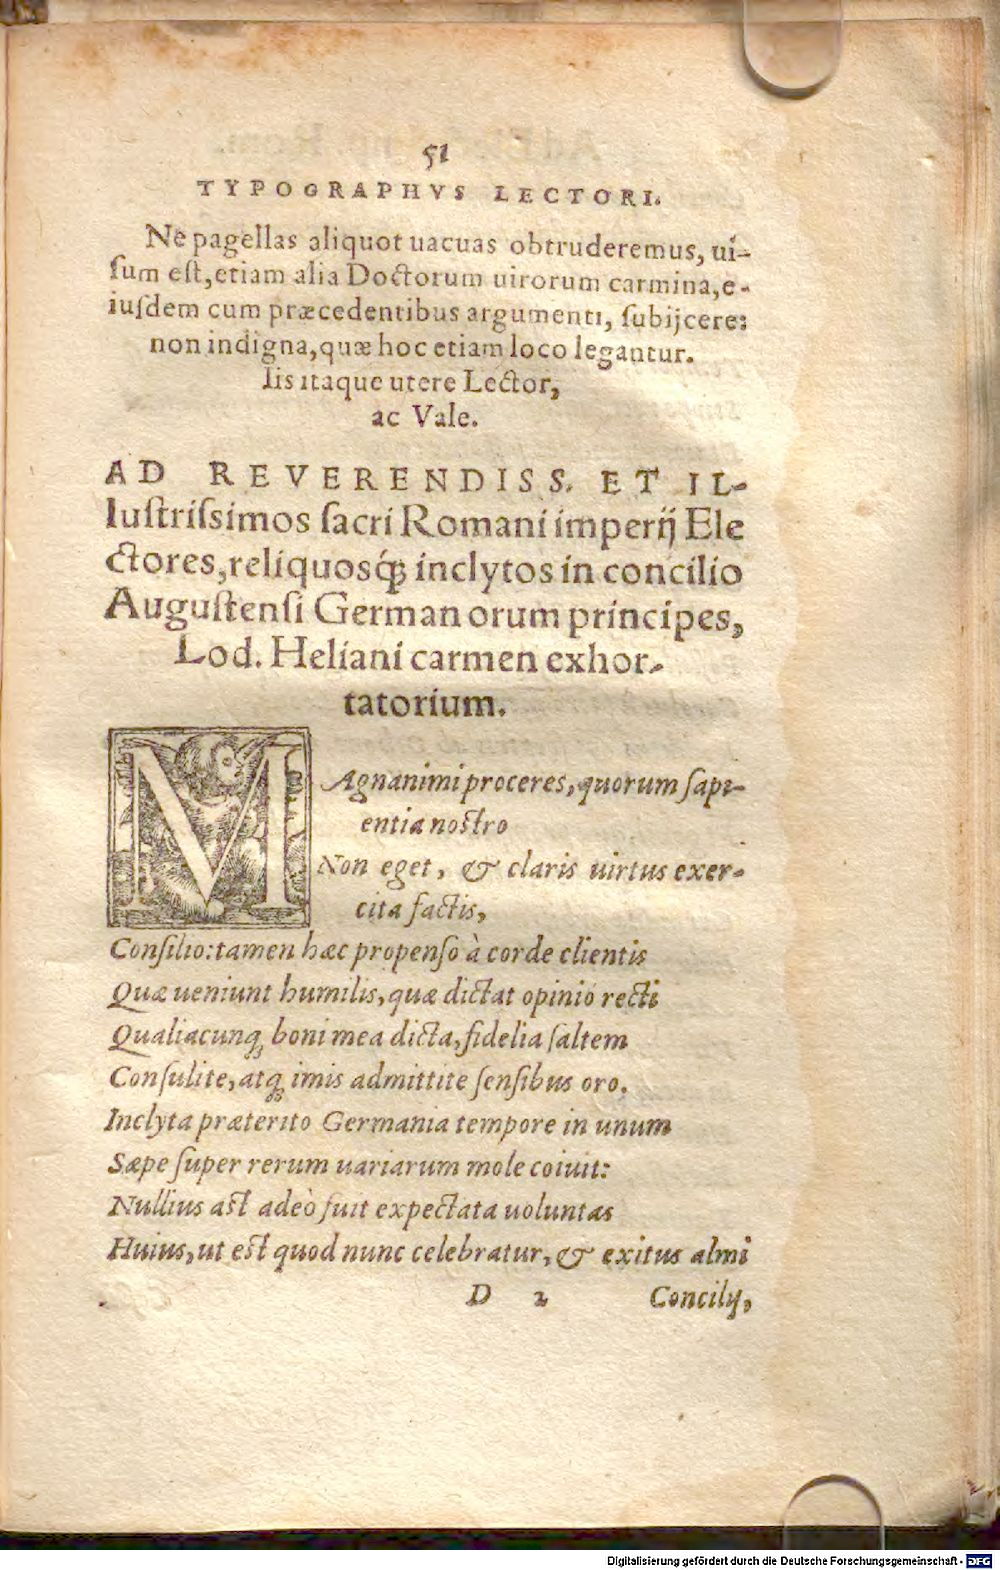 51
TYPOGRAPHVS LECTORI.
Ne pagellas aliquot uacuas obtruderemus, ui-
sum est, etiam alia Doctorum uirorum carmina, e-
iusdem cum præcedentibus argumenti, subijcere:
non indigna, quæ hoc etiam loco legantur.
Iis itaque utere Lector,
ac Vale.
AD REVERENDISS. ET IL-
lustrissimos sacri Romani imperij Ele
ctores, reliquosq́; inclytos in concilio
Augustensi Germanorum principes,
Lod. Heliani carmen exhor-
tatorium.
MAgnanimi proceres, quorum sapi-
entia nostro
Non eget, & claris uirtus exer-
cita factis,
Consilio: tamen hæc propenso à corde clientis
Quæ ueniunt humilis, quæ dictat opinio recti
Qualiacunq; boni mea dicta, fidelia saltem
Consulite, atq; imis admittite sensibus oro.
Inclyta præterito Germania tempore in unum
Sæpe super rerum uariarum mole coiuit:
Nullius ast adeò fuit expectata uoluntas
Huius, ut est quod nunc celebratur, & exitus almi
D 2 Concilij,
Digitalisierung gefördert durch die Deutsche Forschungsgemeinschaft - DFG